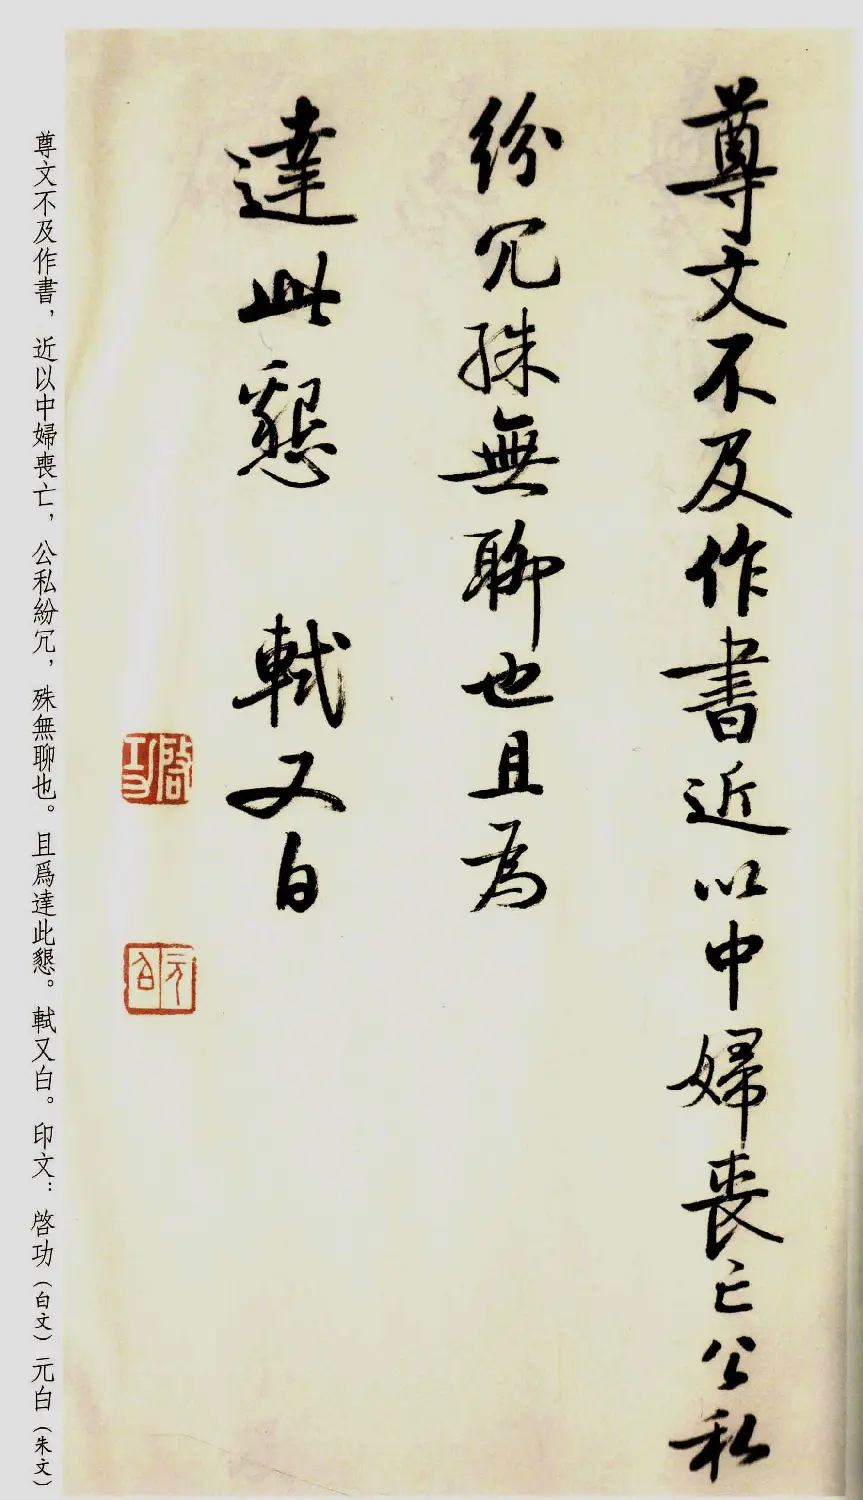 尊文不及作書近以中婦喪亡公私
紛冗殊無聊也且為
達此懇 軾又白
啓功
元白
尊文不及作書，近以中婦喪亡，公私紛冗，殊無聊也。且爲達此懇。軾又白。印文：啓功（白文）元白（朱文）